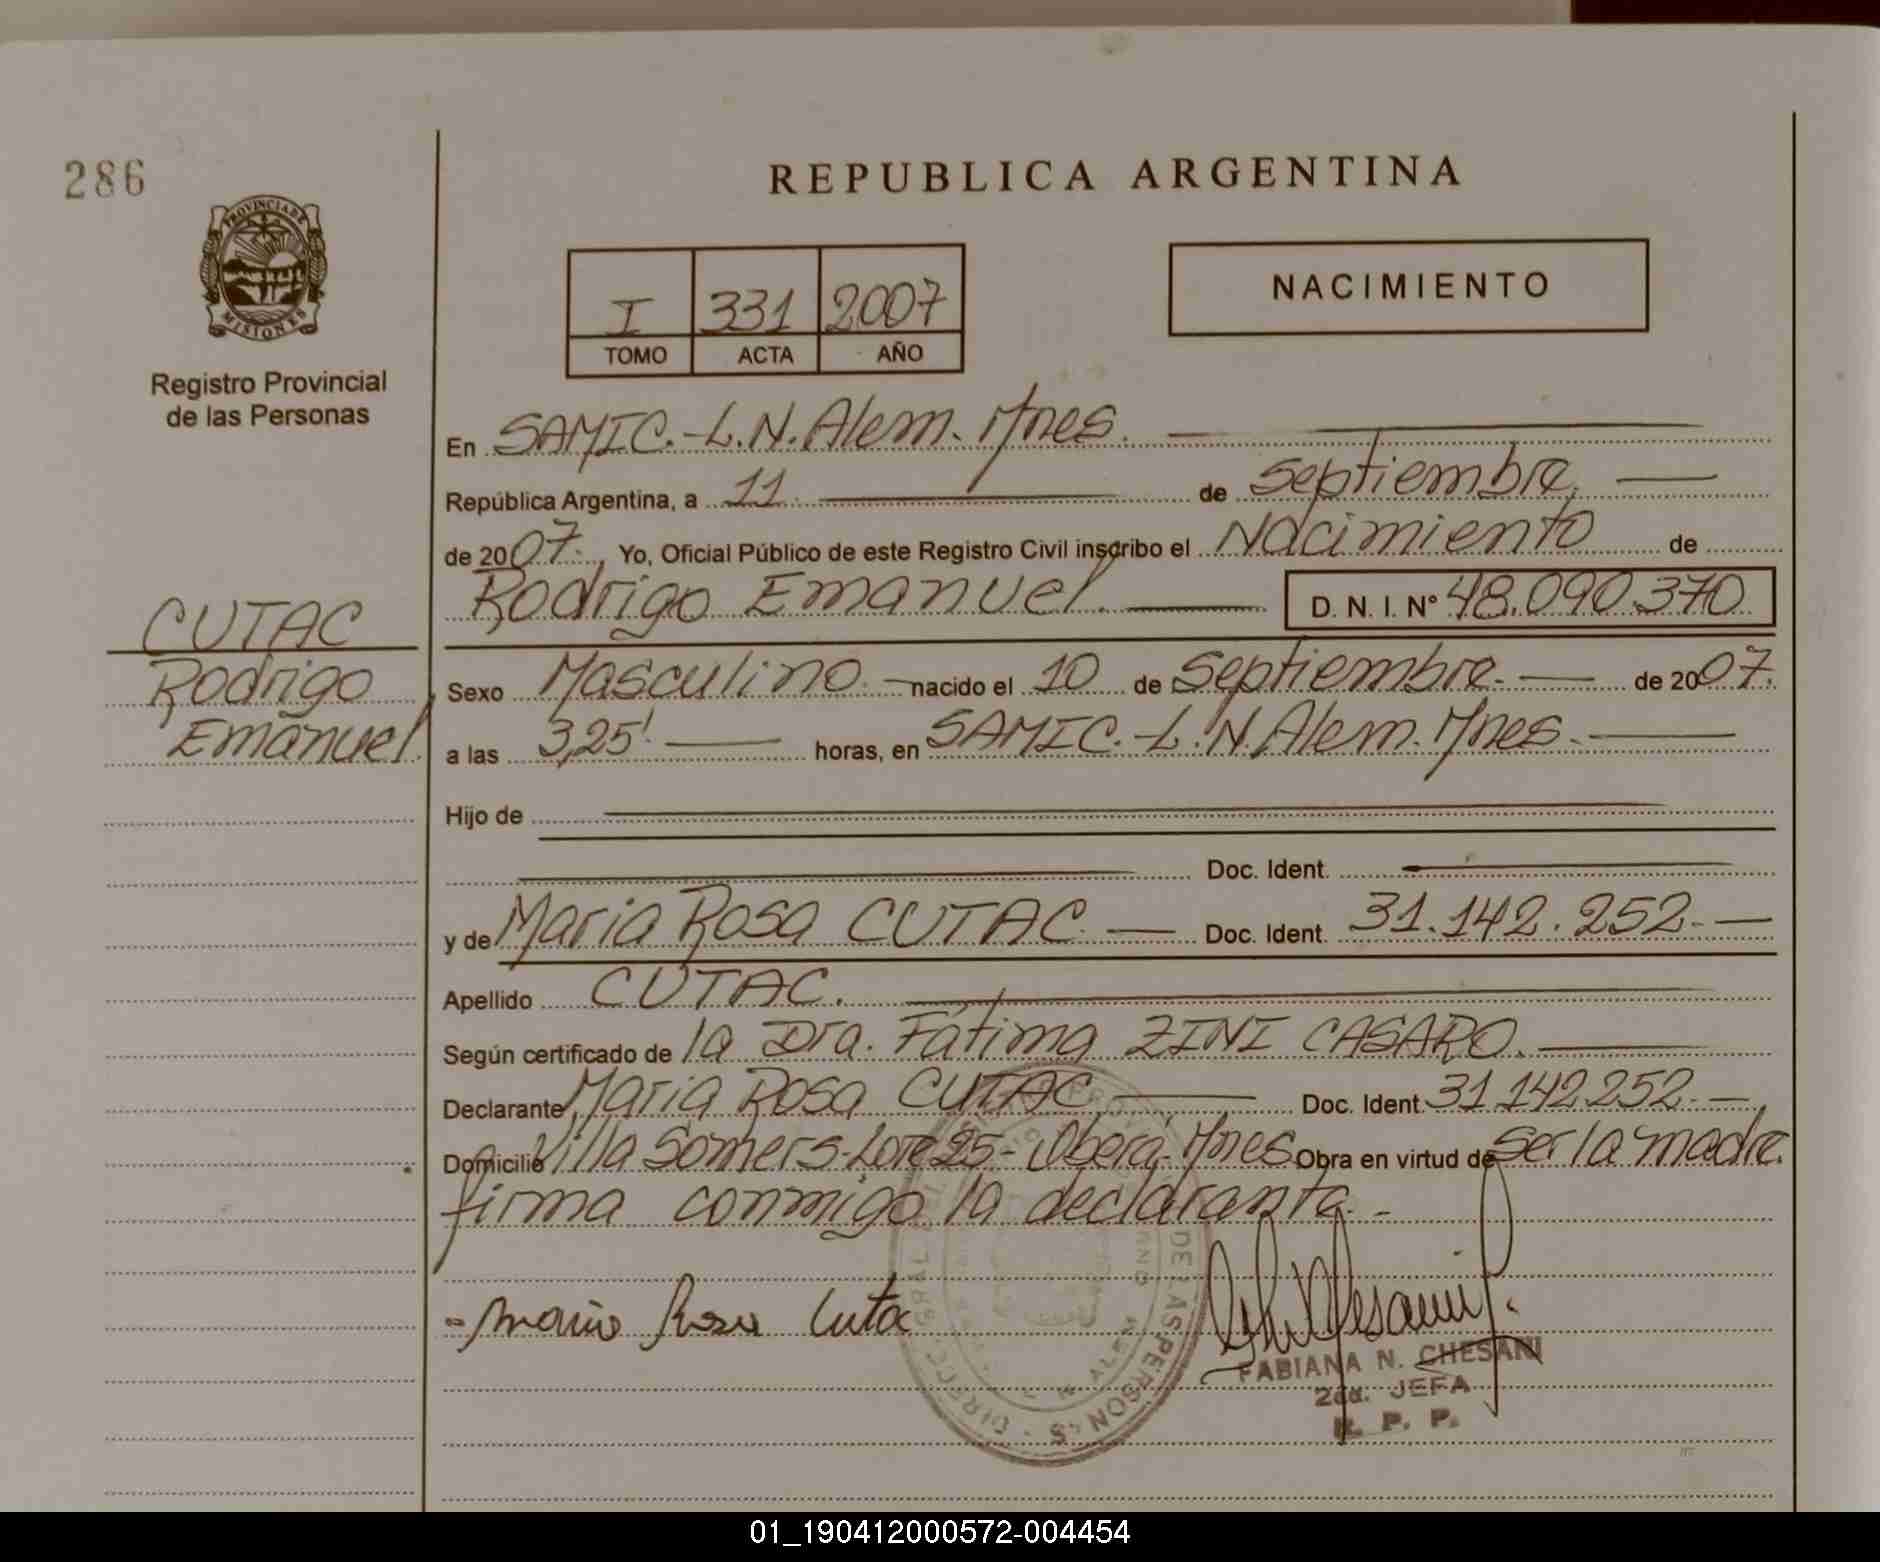 286
REPUBLICA ARGENTINA
PROVINCIA DE
MISIONES
Registro Provincial
de las Personas
I 331 2007
TOMO ACTA AÑO
NACIMIENTO
En SAMIC.-L.N.Alem. Mnes.
República Argentina, a 11. de Septiembre.
de 2007. Yo, Oficial Público de este Registro Civil inscribo el Nacimiento de
Rodrigo Emanuel. D. N. I. Nº 48.090.370
CUTAC
Rodrigo
Emanuel.
Sexo Masculino. nacido el 10 de Septiembre. de 2007.
a las 3,25'. horas, en SAMIC.-L.N.Alem. Mnes.
Hijo de
Doc. Ident.
y de Maria Rosa CUTAC. Doc. Ident. 31.142.252.-
Apellido CUTAC.
Según certificado de la Dra. Fátima ZINI CASARO.
Declarante Maria Rosa CUTAC. Doc. Ident. 31.142.252.-
Domicilio Villa Somers-Lote 25-Oberá-Mnes Obra en virtud de ser la madre.
firma conmigo la declarante.-
Maria Rosa Cutac
FABIANA N. CHESANI
2da. JEFA
R. P. P.
DE LAS PERSONAS
L. N. ALEM
01_190412000572-004454